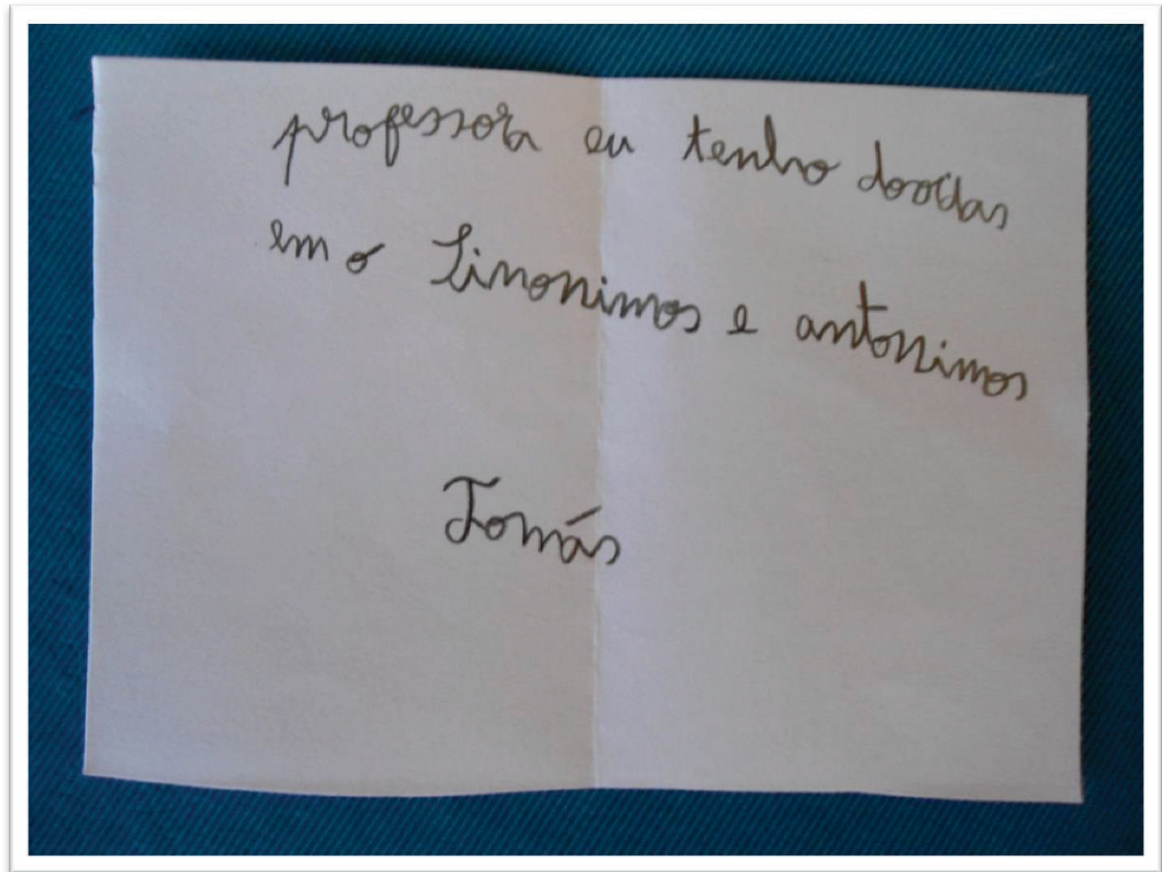 professora eu tenho dovidas
em o Sinonimos e antonimos
Tomás